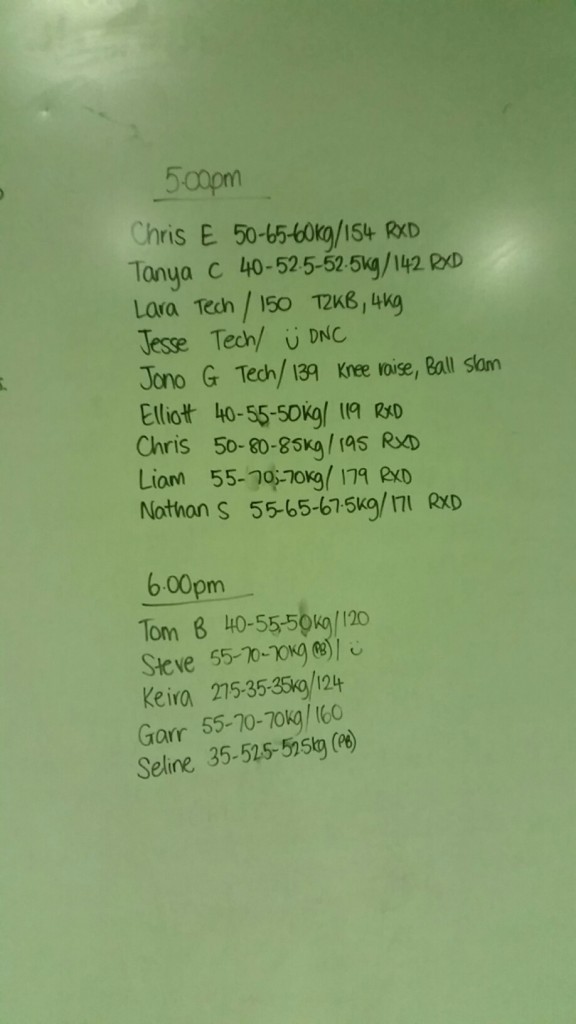 5:00pm
Chris E 50-65-60kg/154 RXD
Tanya C 40-52.5-52.5kg/142 RXD
Lara Tech / 150 T2KB, 4kg
Jesse Tech/ DNC
Jono G Tech/ 139 Knee raise, Ball slam
Elliott 40-55-50kg/ 119 RXD
Chris 50-80-85kg/195 RXD
Liam 55-70-70kg/ 179 RXD
Nathan S 55-65-67.5kg/171 RXD
6:00pm
Tom B 40-55-50kg/120
Steve 55-70-70kg (PB)/
Keira 27.5-35-35kg/124
Garr 55-70-70kg/160
Seline 35-52.5-52.5kg (PB)